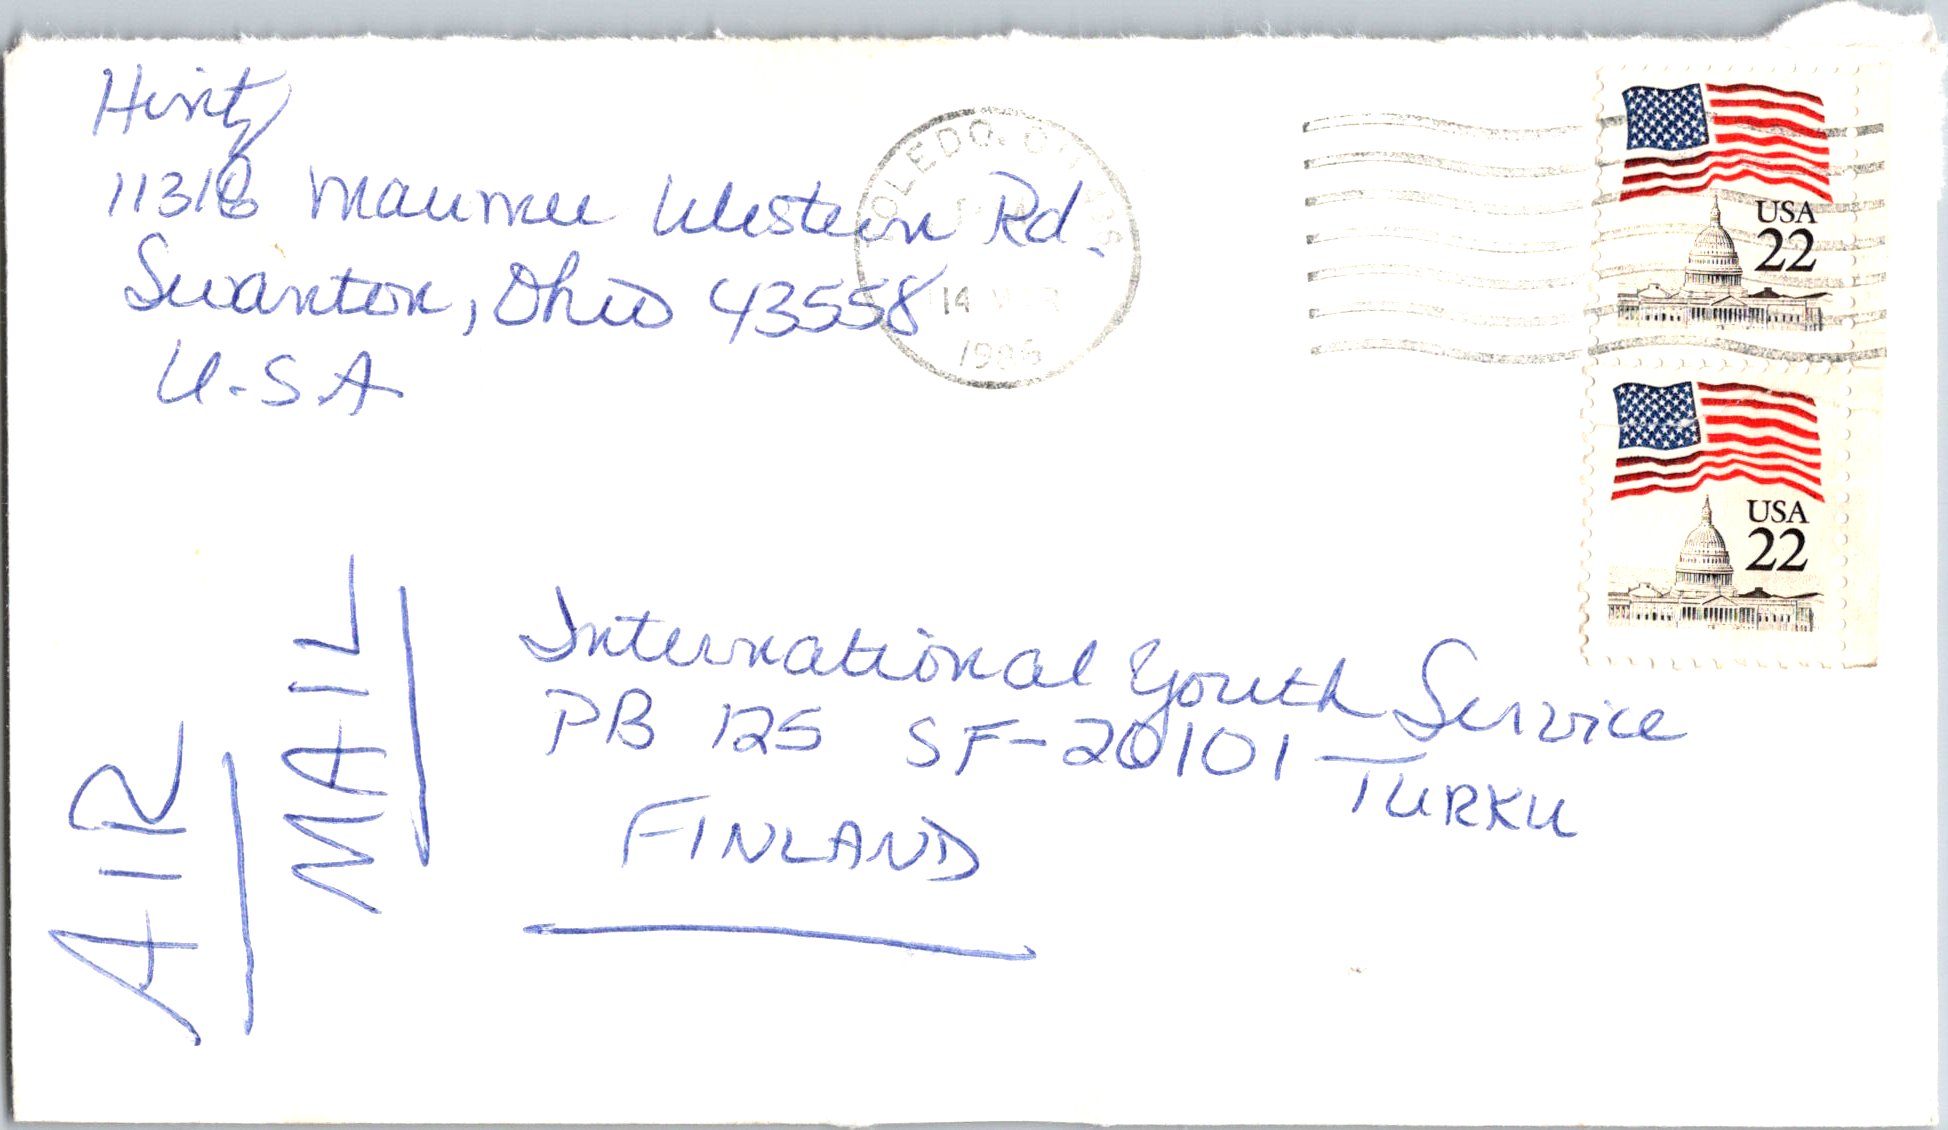 Hintz
11318 Maumee Western Rd.
Swanton, Ohio 43558
U.S.A
TOLEDO, OH
14
1986
USA
22
USA
22
AIR
MAIL
International Youth Service
PB 125 SF-20101 TURKU
FINLAND